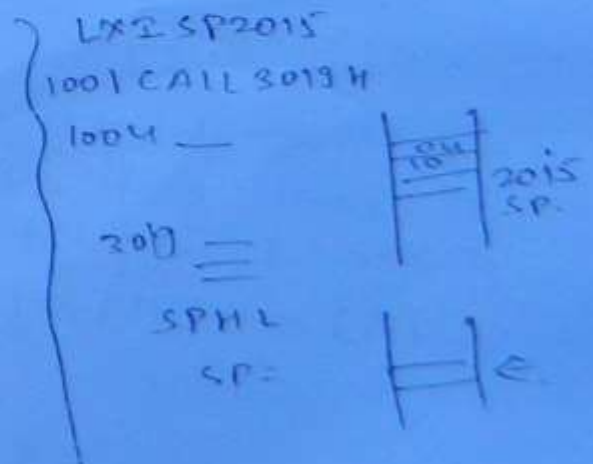 LXI SP2015
1001 CALL 3019H
1004 —
04
10
2015
SP.
SPHL
SP=